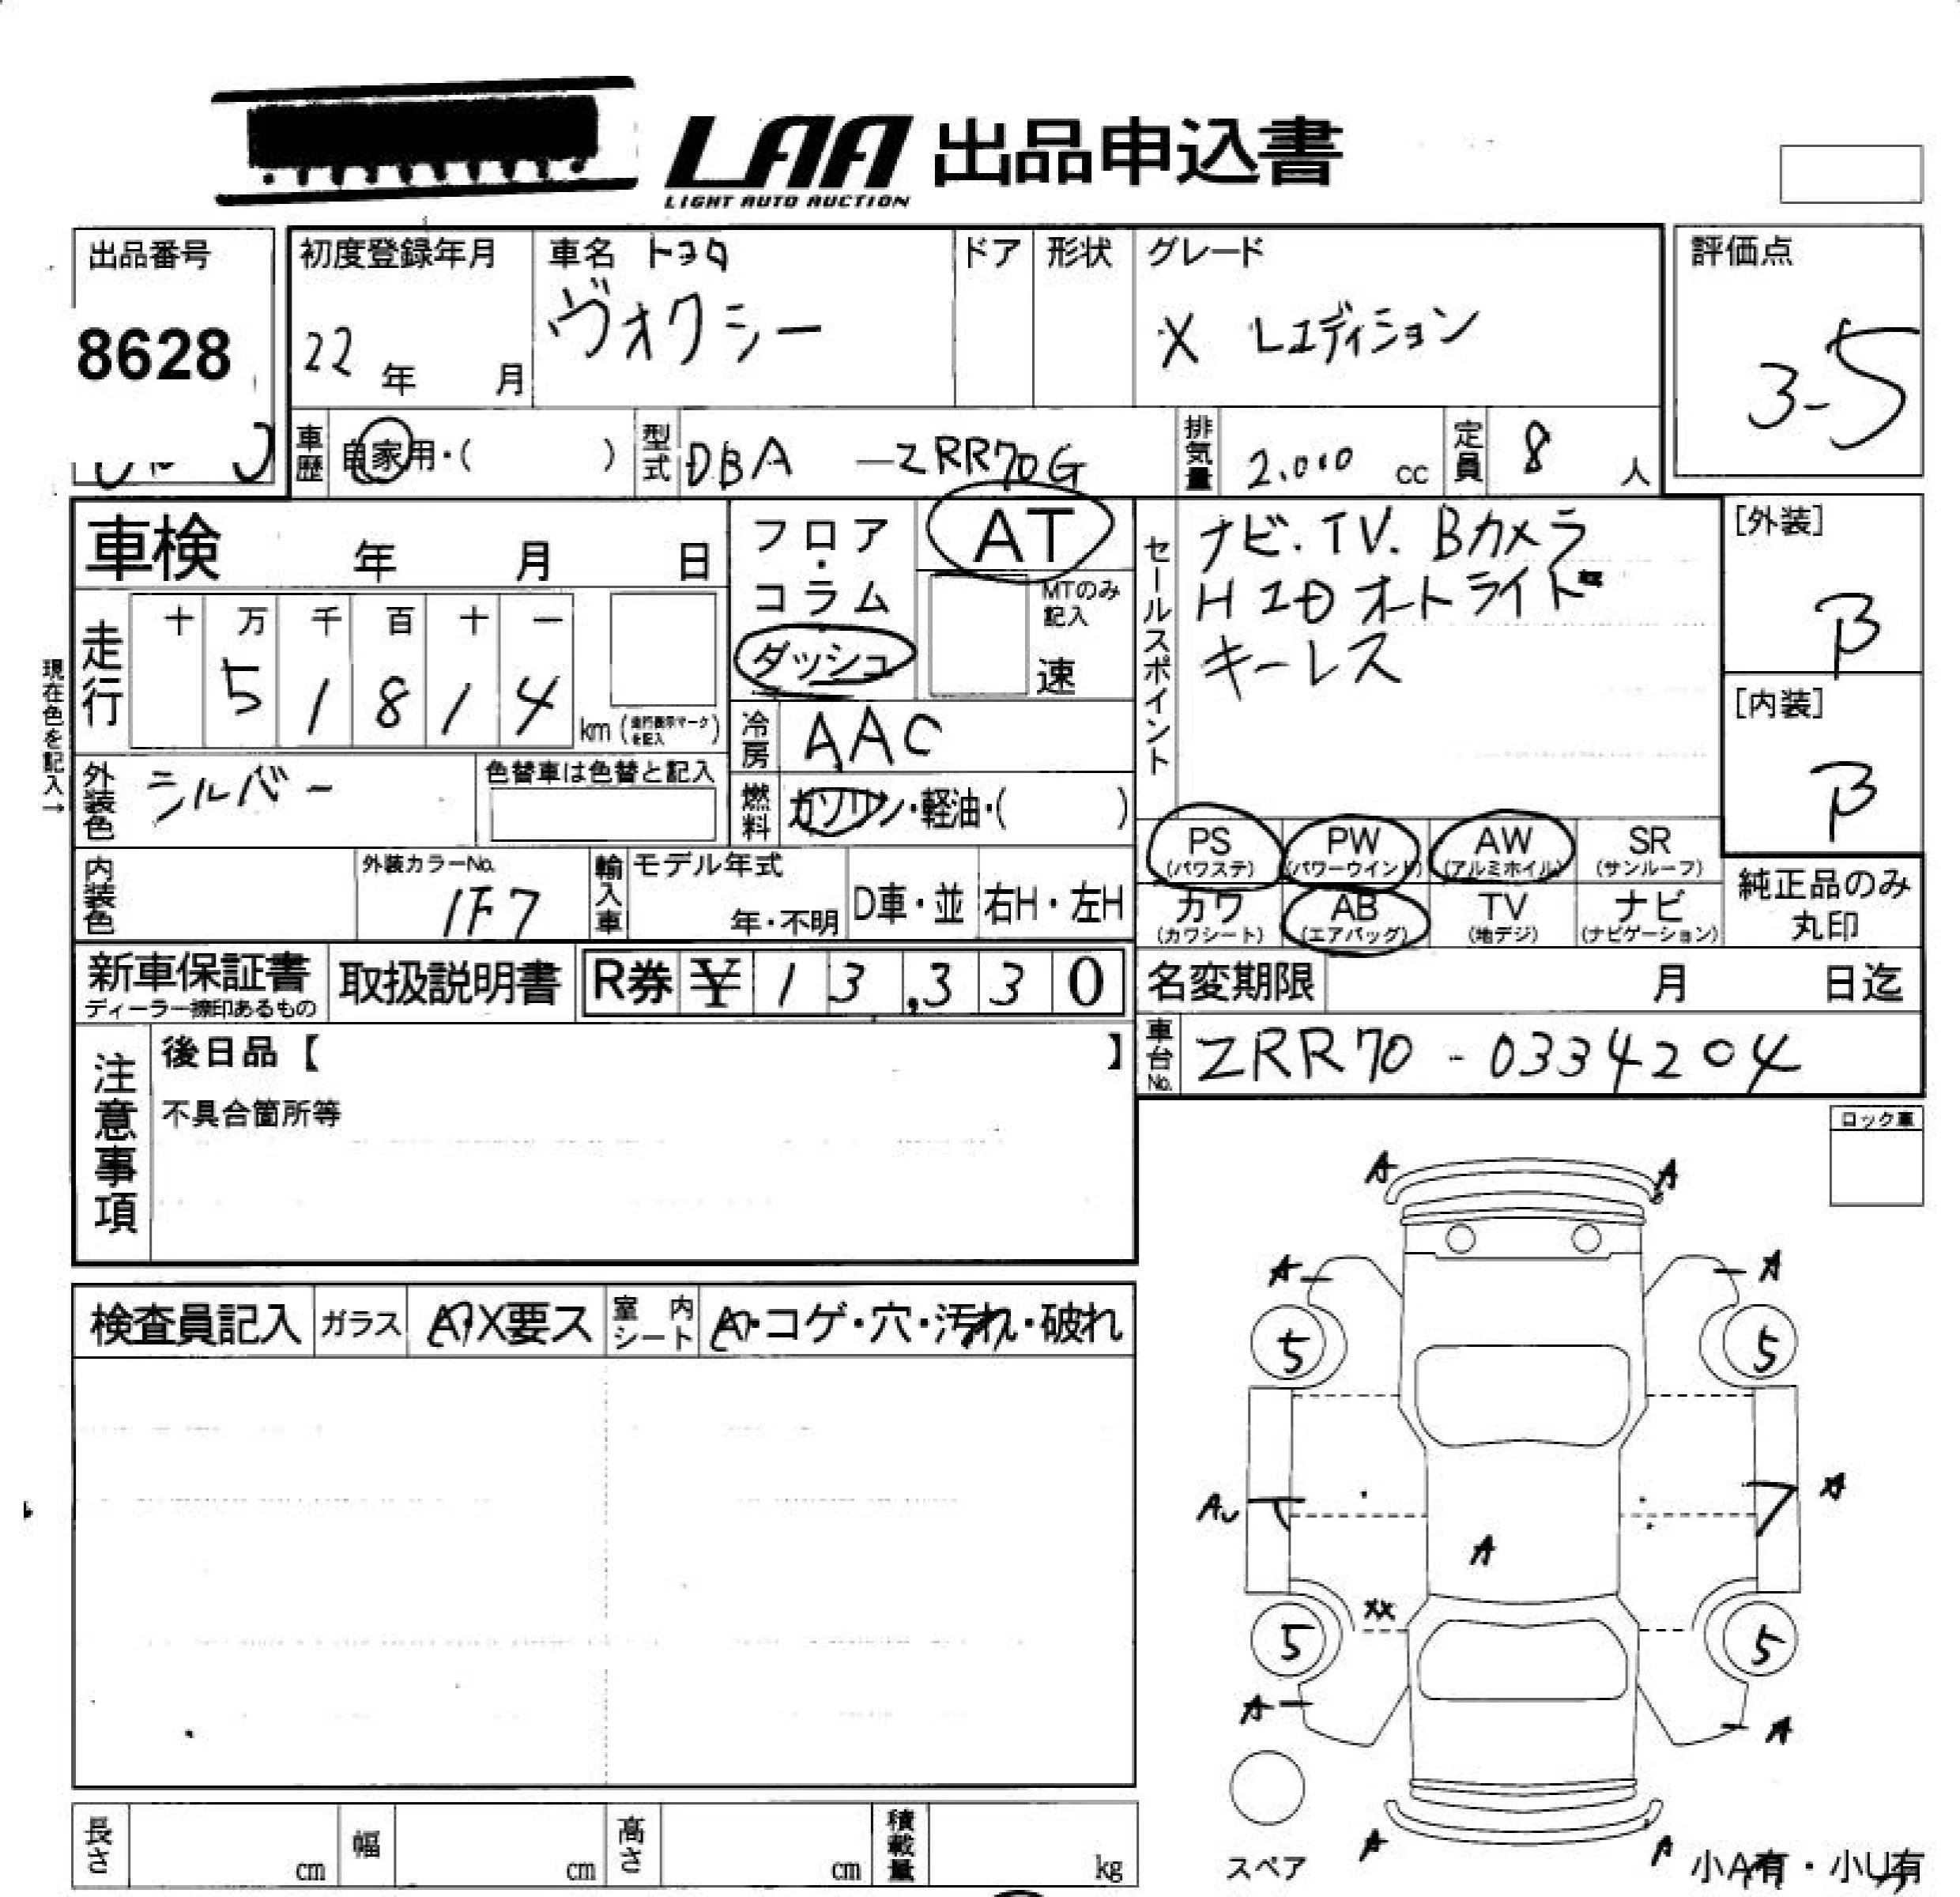 LAA 出品申込書
LIGHT AUTO AUCTION
出品番号
8628
初度登録年月
22 年 月
車名 トヨタ
ヴォクシー
ドア
形状
グレード
X Lエディション
評価点
3-5
車歴 自家用・( )
型式 DBA -ZRR70G
排気量 2.000 cc
定員 8 人
車検 年 月 日
走行
十 万 千 百 十 一
5 1 8 1 4 km (走行表示マークを記入)
現在色を記入→
フロア・コラム
ダッシュ
AT
MTのみ記入
速
冷房 AAC
燃料 ガソリン・軽油・( )
外装色 シルバー
色替車は色替と記入
内装色
外装カラーNo.
1F7
輸入車
モデル年式
年・不明
D車・並
右H・左H
セールスポイント
ナビ.TV.Bカメラ
HID オートライト
キーレス
[外装]
B
[内装]
B
PS
(パワステ)
PW
(パワーウインド)
AW
(アルミホイル)
SR
(サンルーフ)
カワ
(カワシート)
AB
(エアバッグ)
TV
(地デジ)
ナビ
(ナビゲーション)
純正品のみ
丸印
新車保証書
ディーラー捺印あるもの
取扱説明書
R券 ¥ 1 3 ,3 3 0
名変期限 月 日迄
車台No. ZRR70 - 0334204
注意事項
後日品【 】
不具合箇所等
ロック車
検査員記入
ガラス
A・X要ス
室内シート
A・コゲ・穴・汚れ・破れ
A A
A A
5 5
AU A
A
XX
5 5
A A
スペア
A A
小A有・小U有
長さ cm
幅 cm
高さ cm
積載量 kg